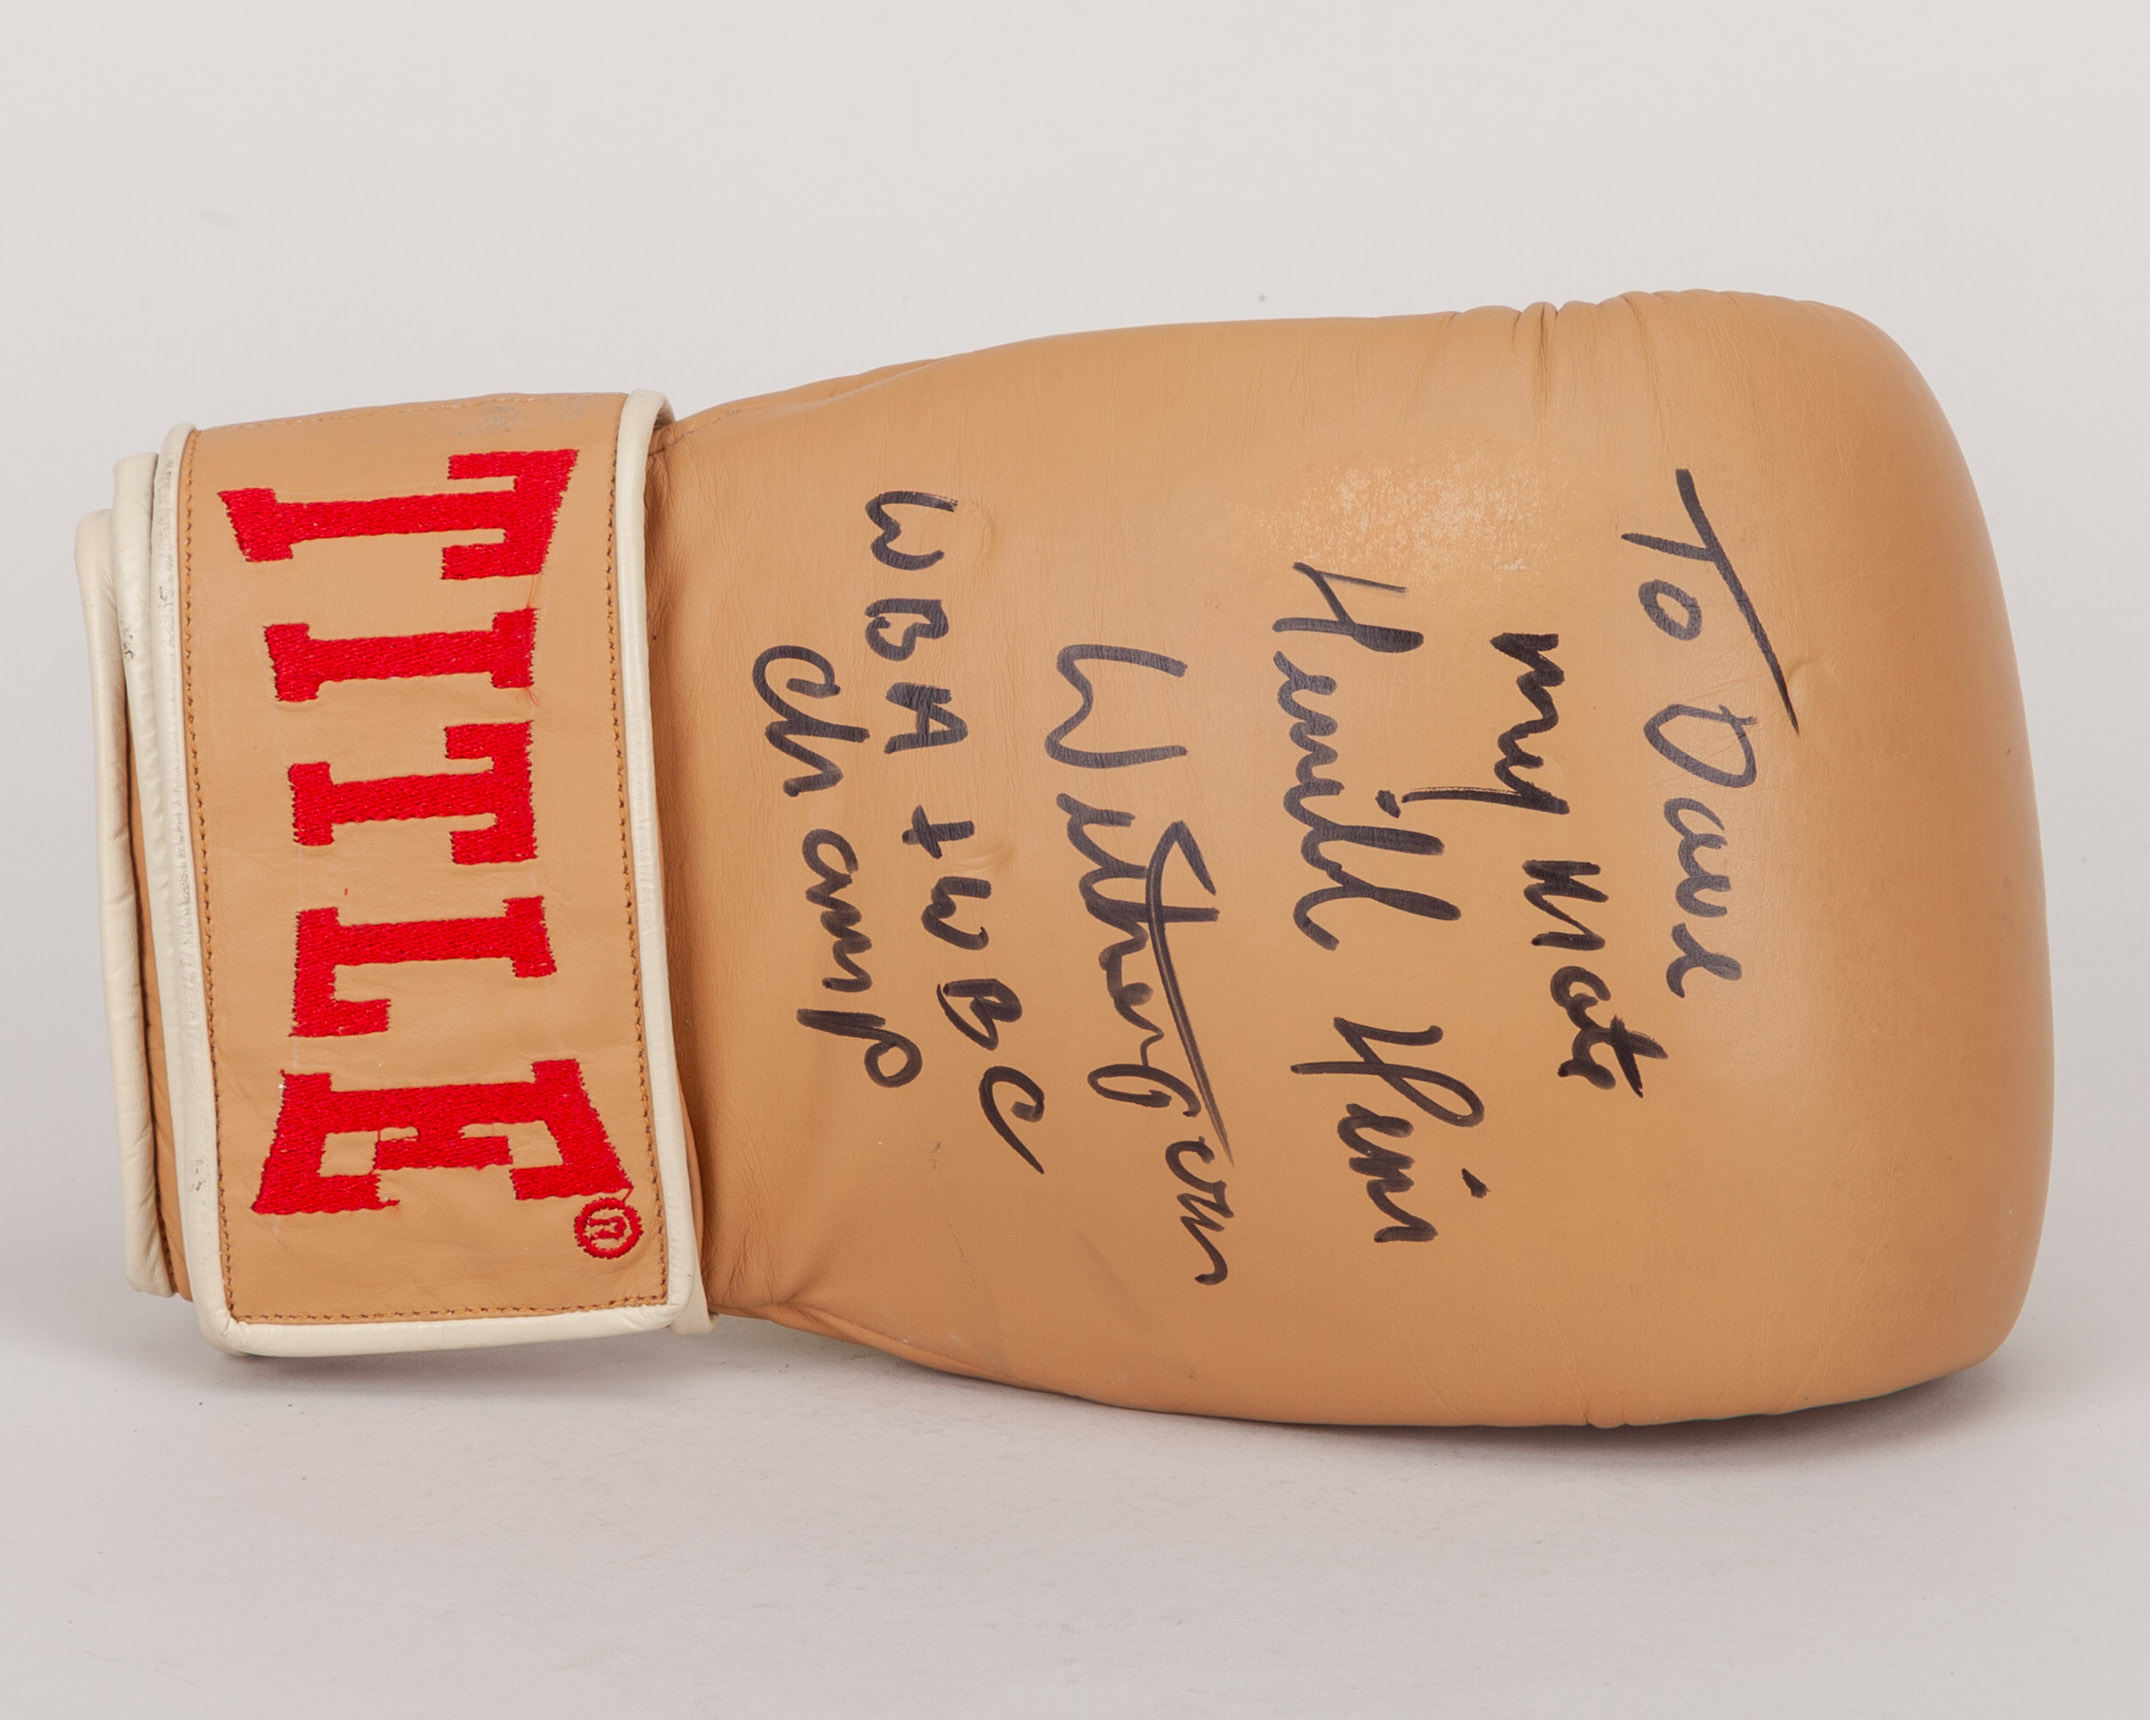 To Dave
my mate
Terrible Tim
Witherspoon
WBA + WBC
Champ
TITLE®